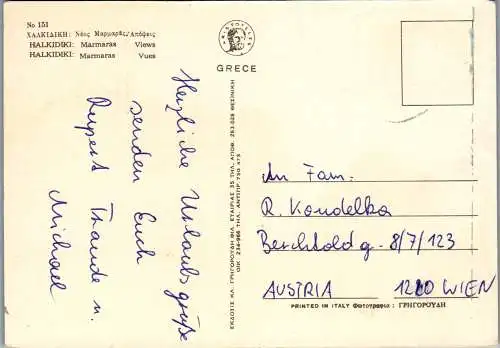 No 151
ΧΑΛΚΙΔΙΚΗ: Νέος Μαρμαρᾶς/Ἀπόψεις
HALKIDIKI: Marmaras Views
HALKIDIKI: Marmaras Vues
GRECE
Herzliche Urlaubsgrüße
senden Euch
Rupert Traude u.
Michael
ΕΚΔΟΣΙΣ ΚΛ. ΓΡΗΓΟΡΟΥΔΗ ΦΙΛ. ΕΤΑΙΡΙΑΣ 35 ΤΗΛ. ΑΠΟΘ. 263.028 ΘΕΣ/ΝΙΚΗ
ΟΙΚ 234-966 ΤΗΛ. ΑΝΤΙΠΡ. 750 475
An Fam.
R. Koudelka
Berchtoldg. 8/7/123
AUSTRIA 1210 WIEN
PRINTED IN ITALY Φωτογραφία: ΓΡΗΓΟΡΟΥΔΗ